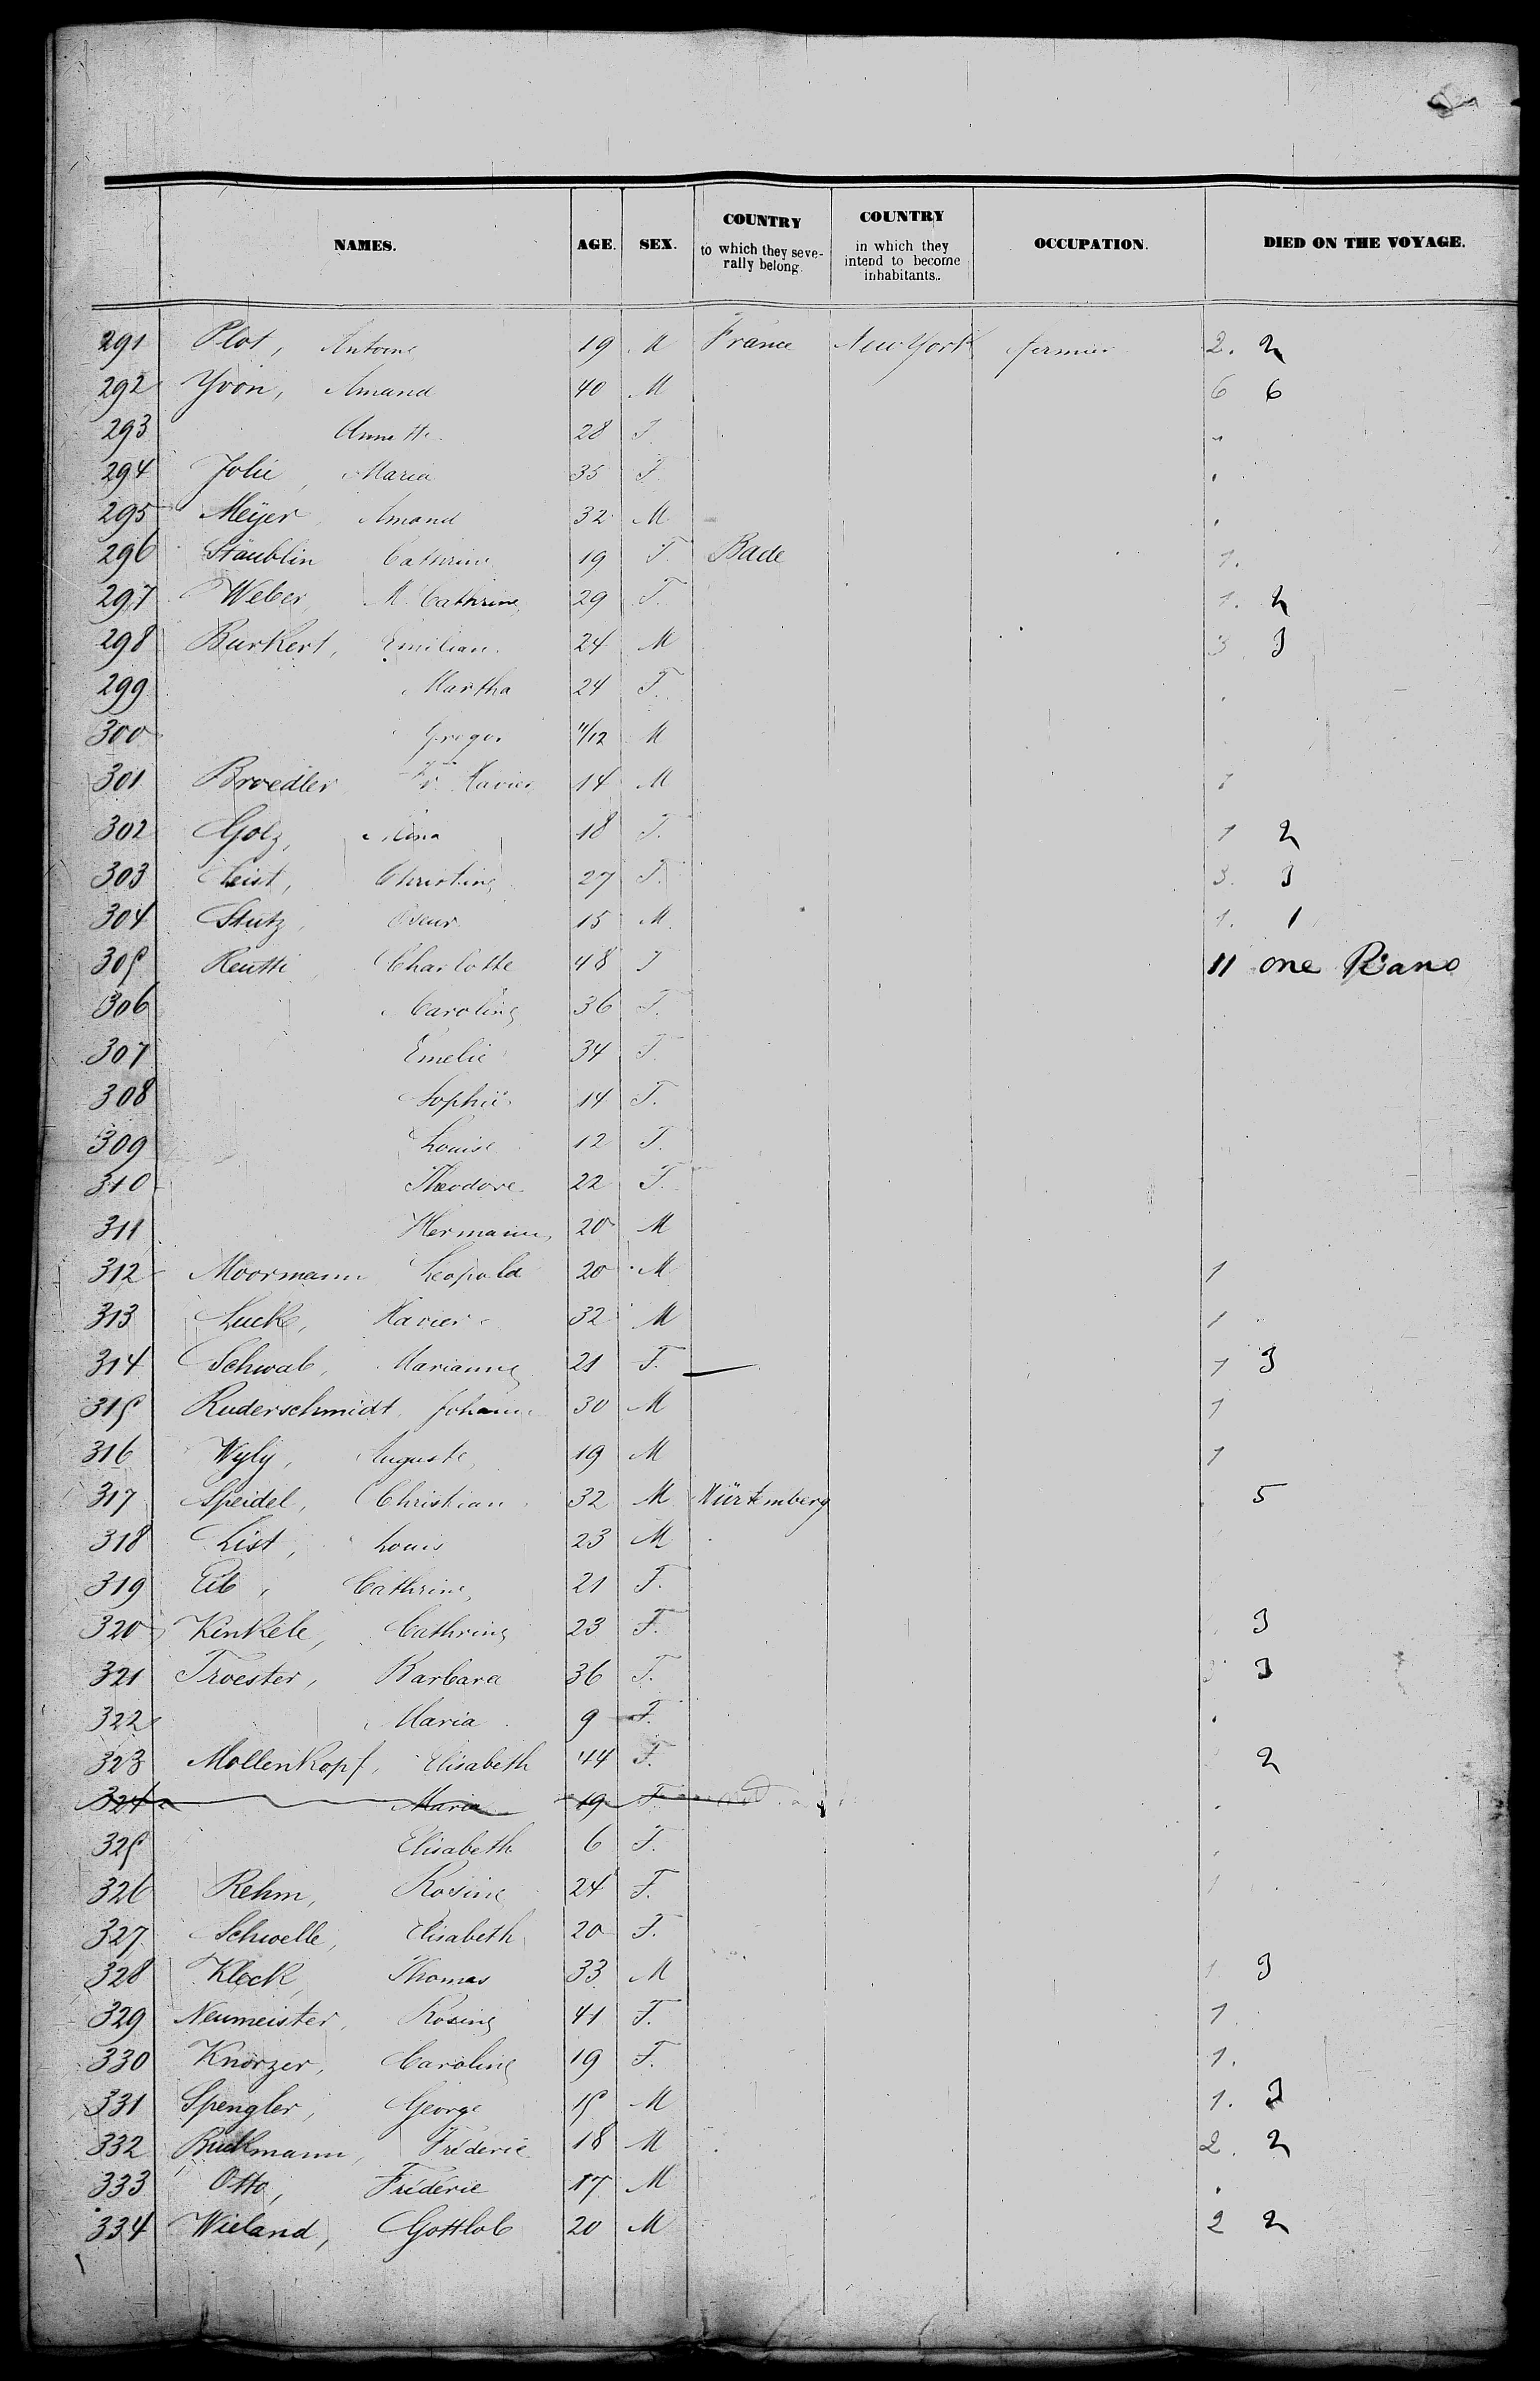 NAMES. AGE. SEX. COUNTRY to which they seve-rally belong. COUNTRY in which they intend to become inhabitants. OCCUPATION. DIED ON THE VOYAGE.
291 Plot, Antoine 19 M France New York fermier 2. 2
292 Yvon, Amand 40 M 6 6
293 Annette 28 F
294 Jolie, Maria 35 F
295 Meÿer, Amand 32 M
296 Stäublin Cathrine 19 F. Bade 1.
297 Weber, M. Cathrine 29 F. 1. 2
298 Burkert, Emilian 24 M 3 3
299 Martha 24 F.
300 Gregor 11/12 M
301 Broedler Fr. Xavier 14 M 1
302 Golz, Mina 18 F. 1 2
303 Leist, Christine 27 F. 3. 3
304 Stutz, 15 M 1. 1
305 Reutti, Charlotte 48 F 11 one Piano
306 Caroline 36 F.
307 Emelie 34 F.
308 Sophie 14 F.
309 Louise 12 F.
310 Theodore 22 F.
311 Hermann 20 M
312 Moormann Leopold 20 M 1
313 Luck, Xavier 32 M 1
314 Schwab, Marianne 21 F. 1 3
315 Ruderschmidt, Johann 30 M 1
316 Wyly, Auguste 19 M 1
317 Speidel, Christian 32 M Würtemberg 5
318 List, Louis 23 M
319 Eib, Cathrine 21 F.
320 Kinkele, Cathrine 23 F. 3
321 Troester, Barbara 36 F. 3 3
322 Maria 9 F.
323 Mollenkopf, Elisabeth 44 F. 2
324 Maria 19 F.
325 Elisabeth 6 F.
326 Rehm, Rosine 24 F. 1
327 Schwelle, Elisabeth 20 F.
328 Kleck, Thomas 33 M 1 3
329 Neumeister, Rosine 41 F. 1.
330 Knörzer, Caroline 19 F. 1.
331 Spengler, George 15 M 1. 3
332 Buckmann, Fréderic 18 M 2. 2
333 Otto, Fréderic 17 M
334 Wieland, Gottlob 20 M 2 2